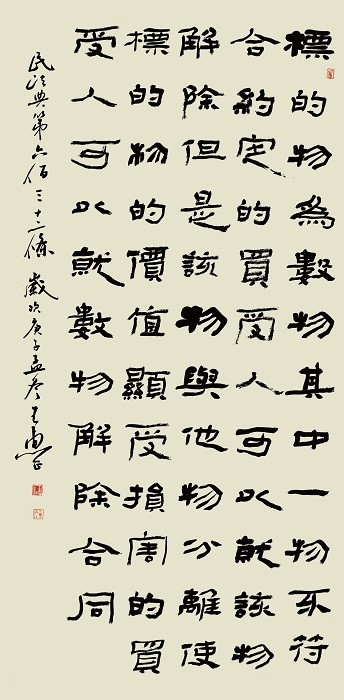 標的物為數物其中一物不符
合約定的買受人可以就該物
解除但是該物與他物分離使
標的物的價值顯受損害的買
受人可以就數物解除合同
民法典第六佰三十二條 歲次庚子孟冬